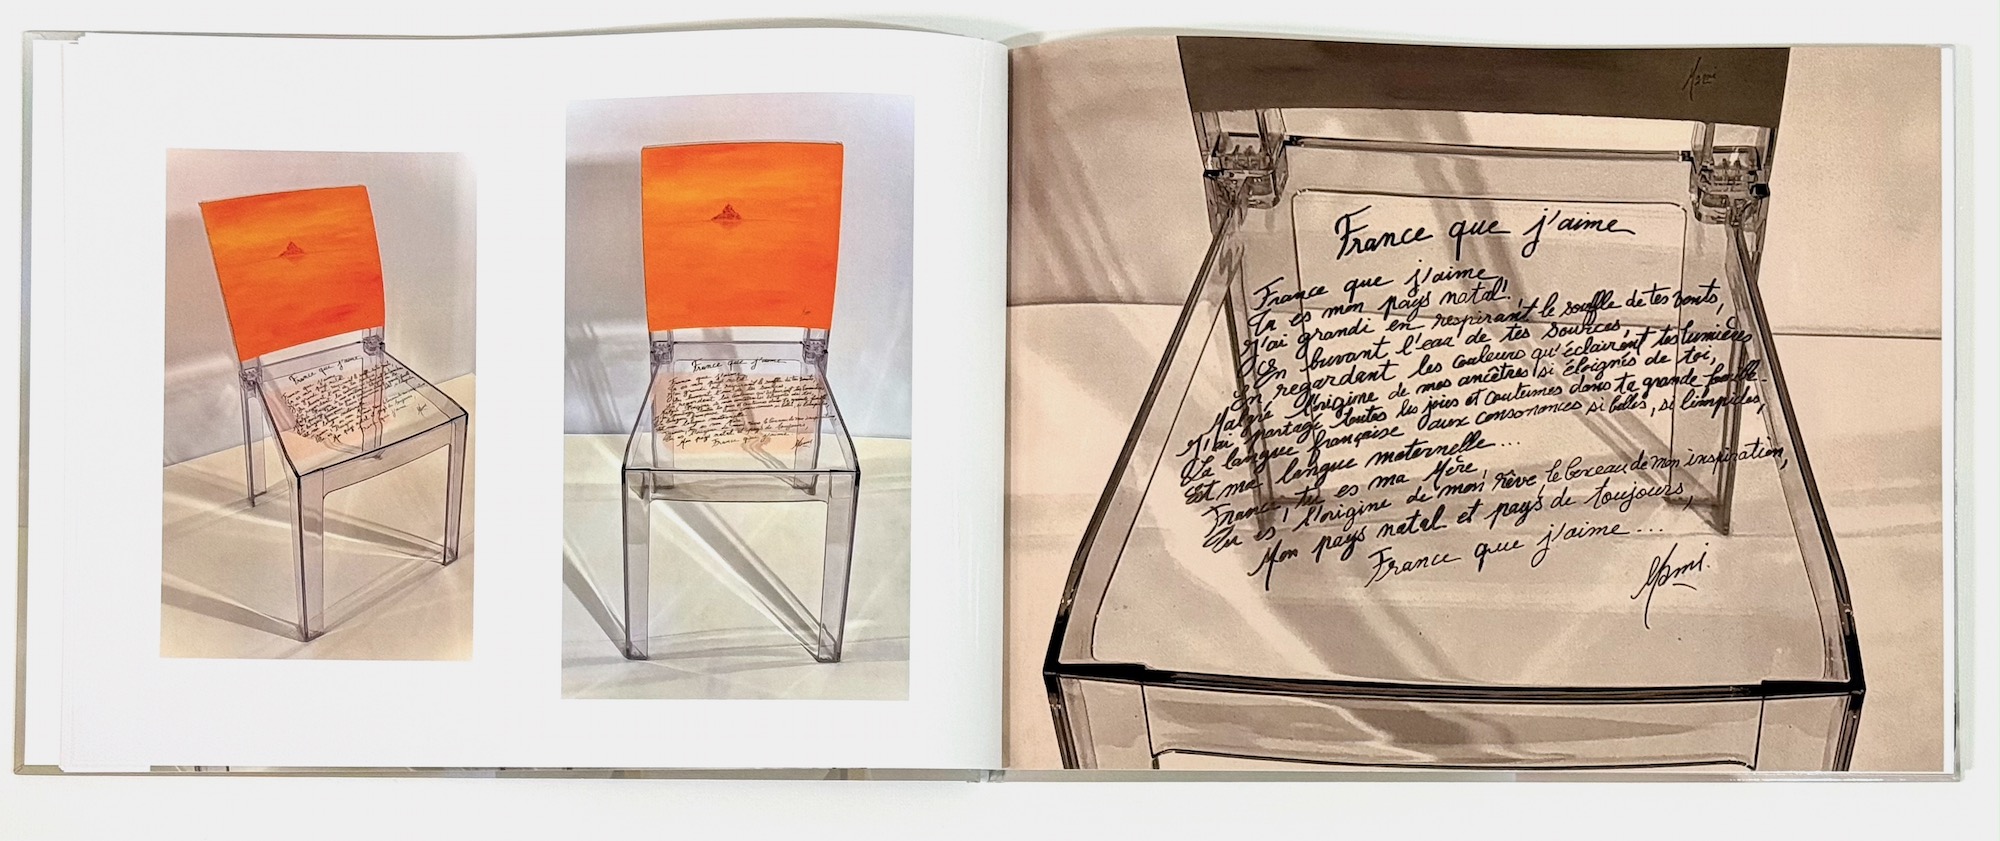 France que j'aime
France que j'aime,
Tu es mon pays natal!
J'ai grandi en respirant le souffle de tes vents,
En buvant l'eau de tes sources,
En regardant les couleurs qu'éclairent tes lumières
Malgré l'origine de mes ancêtres si éloignés de toi,
J'ai partagé toutes les joies et coutumes dans ta grande famille.
La langue française aux consonances si belles, si limpides,
Est ma langue maternelle...
France, tu es ma Mère,
Tu es l'origine de mon rêve, le berceau de mon inspiration,
Mon pays natal et pays de toujours,
France que j'aime...